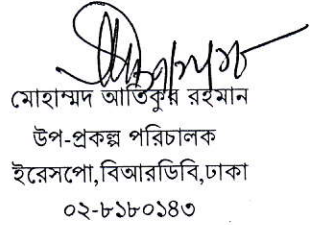 মোহাম্মদ আতিকুর রহমান
উপ-প্রকল্প পরিচালক
ইরেসপো,বিআরডিবি,ঢাকা
০২-৮১৮০১৪৩